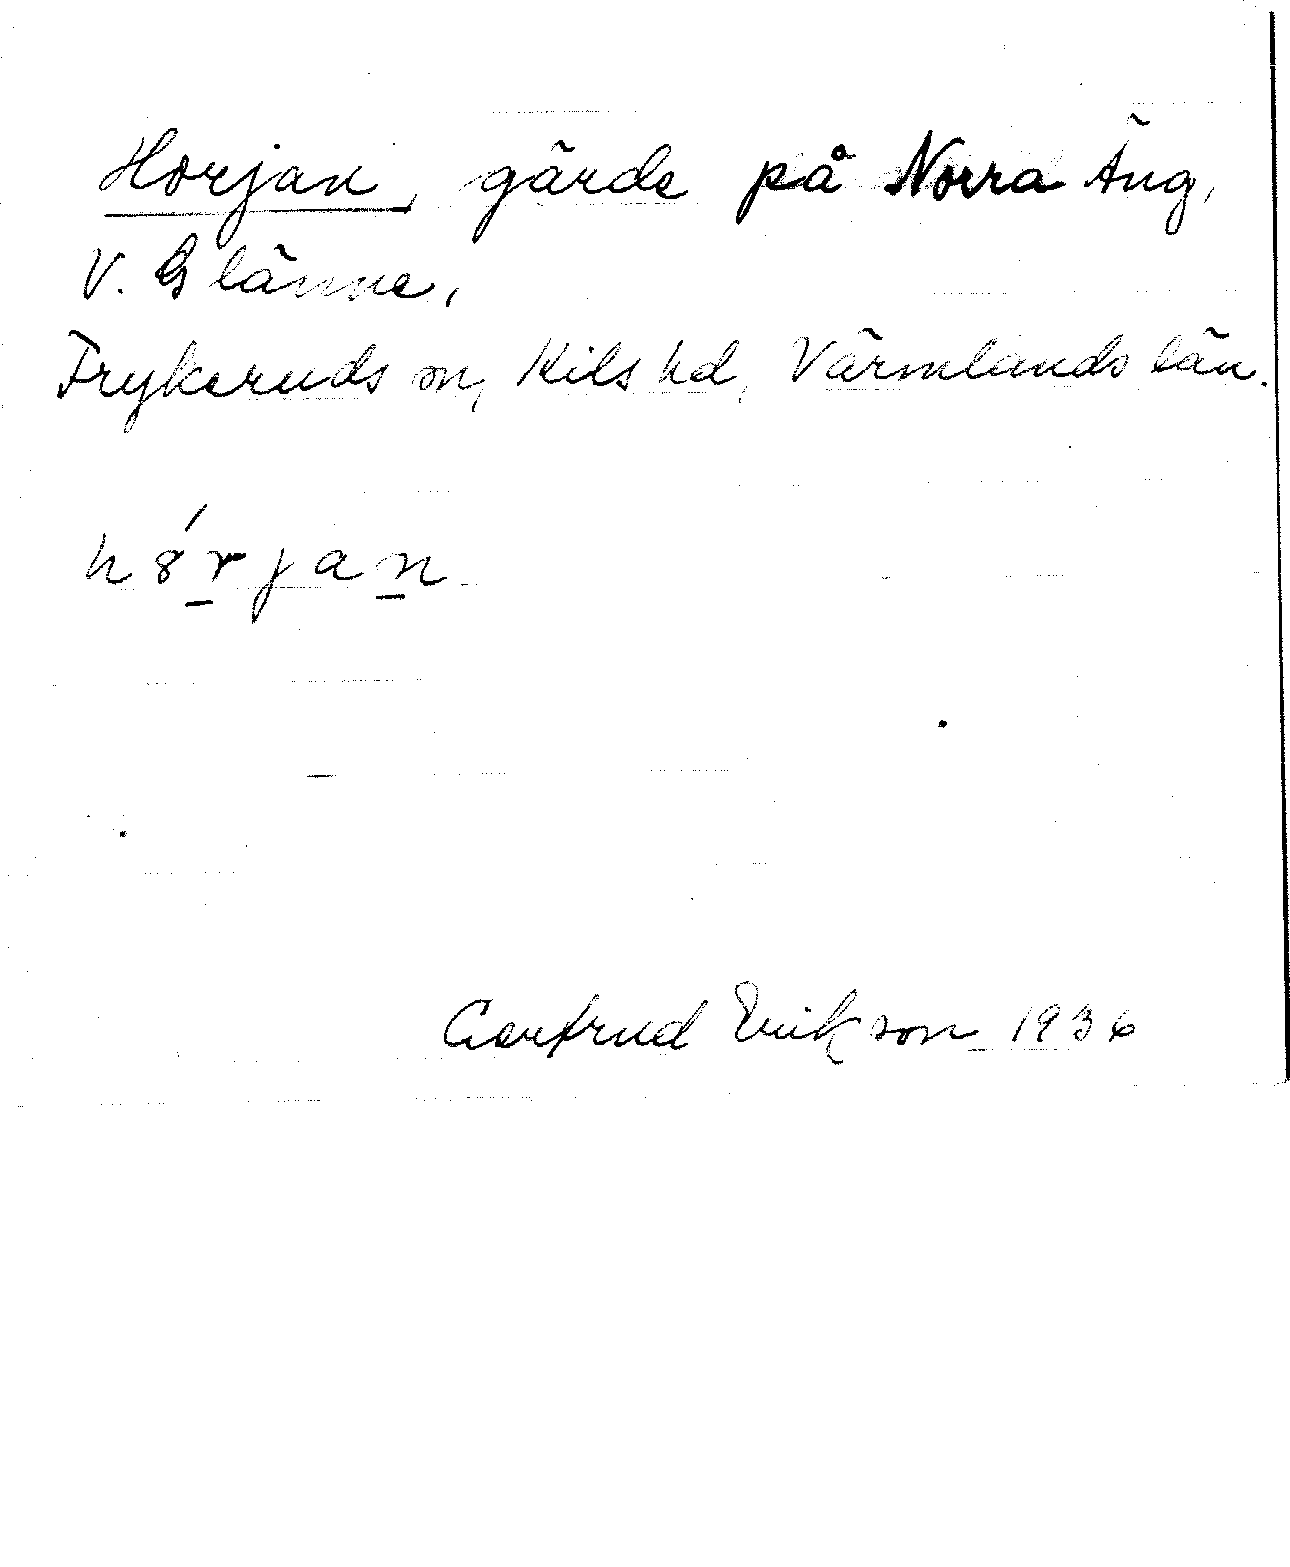 Horjan, gärde på Norra Äng,
V. Glänne,
Frykeruds sn, Kils hd, Värmlands län.
h8́rjan
Gertrud Erikson 1936